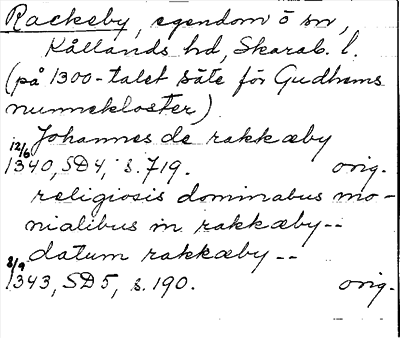 Rackeby, egendom ö sn,
Kållands hd, Skarab. l.
(på 1300-talet säte för Gudhems
nunnekloster)
Johannes de rakkæby
12/6 1340, SD4, s. 719. orig.
religiosis dominabus mo-
nialibus in rakkæby--
datum rakkæby --
8/9 1343, SD5, s. 190. orig.